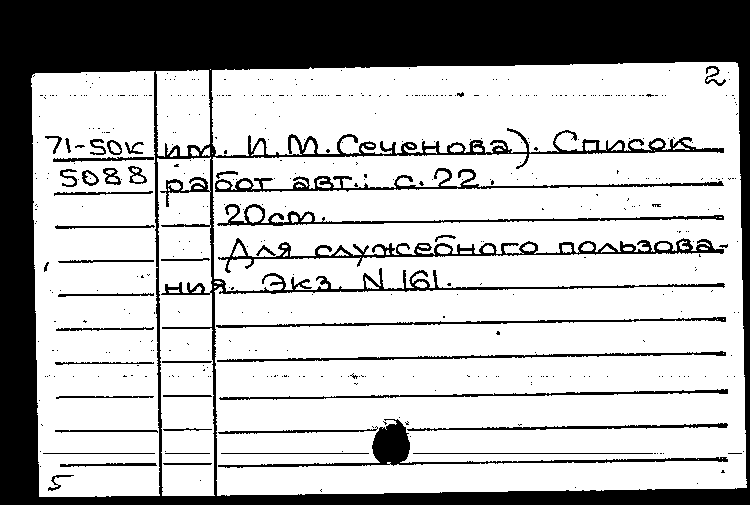 2
71-50к им. И.М.Сеченова). Список
5088 работ авт.: с.22.
20см.
Для служебного пользова-
ния. Экз. N 161.
5